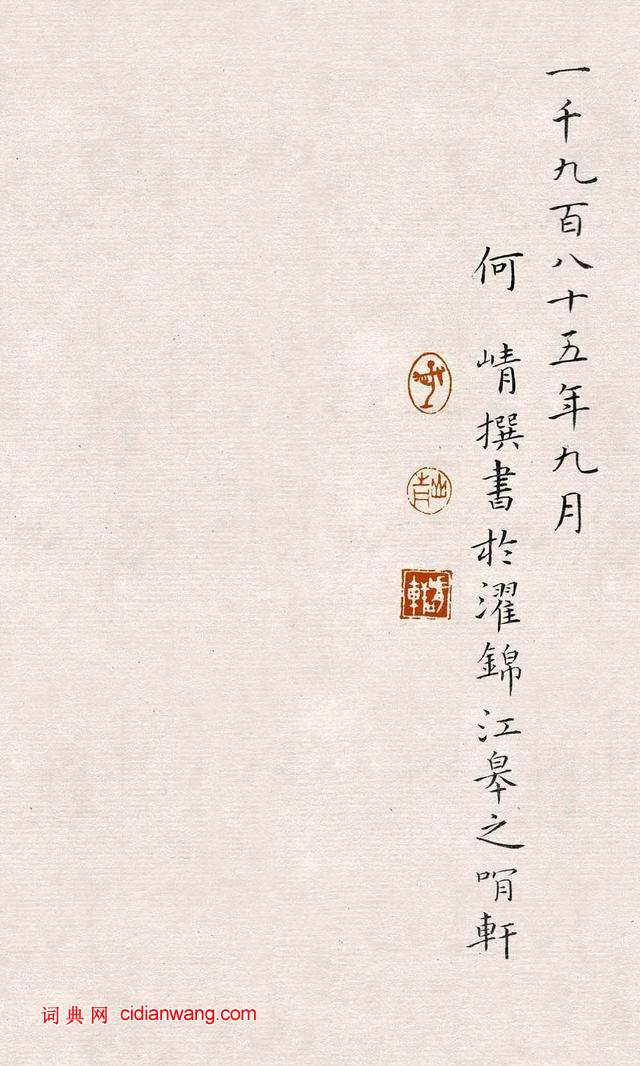 一千九百八十五年九月
何崝撰書於濯錦江皋之軒
崝
词典网 cidianwang.com